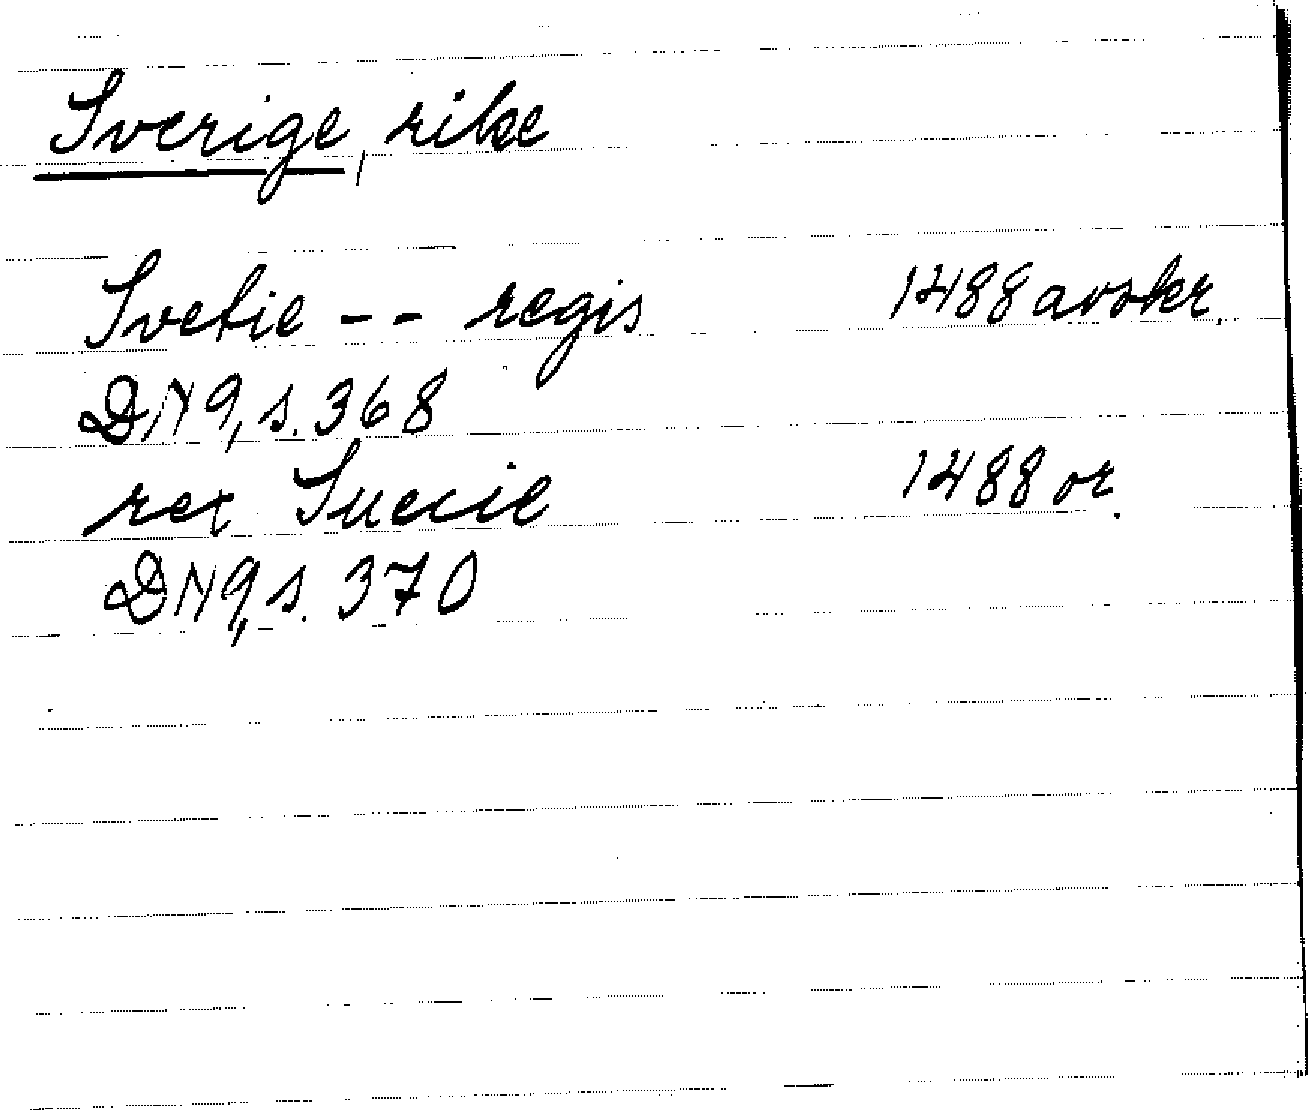 Sverige, rike
Svetie -- regis 1488 avskr.
DN 9, s. 368
rex Suecie 1488 or.
DN 9, s. 370